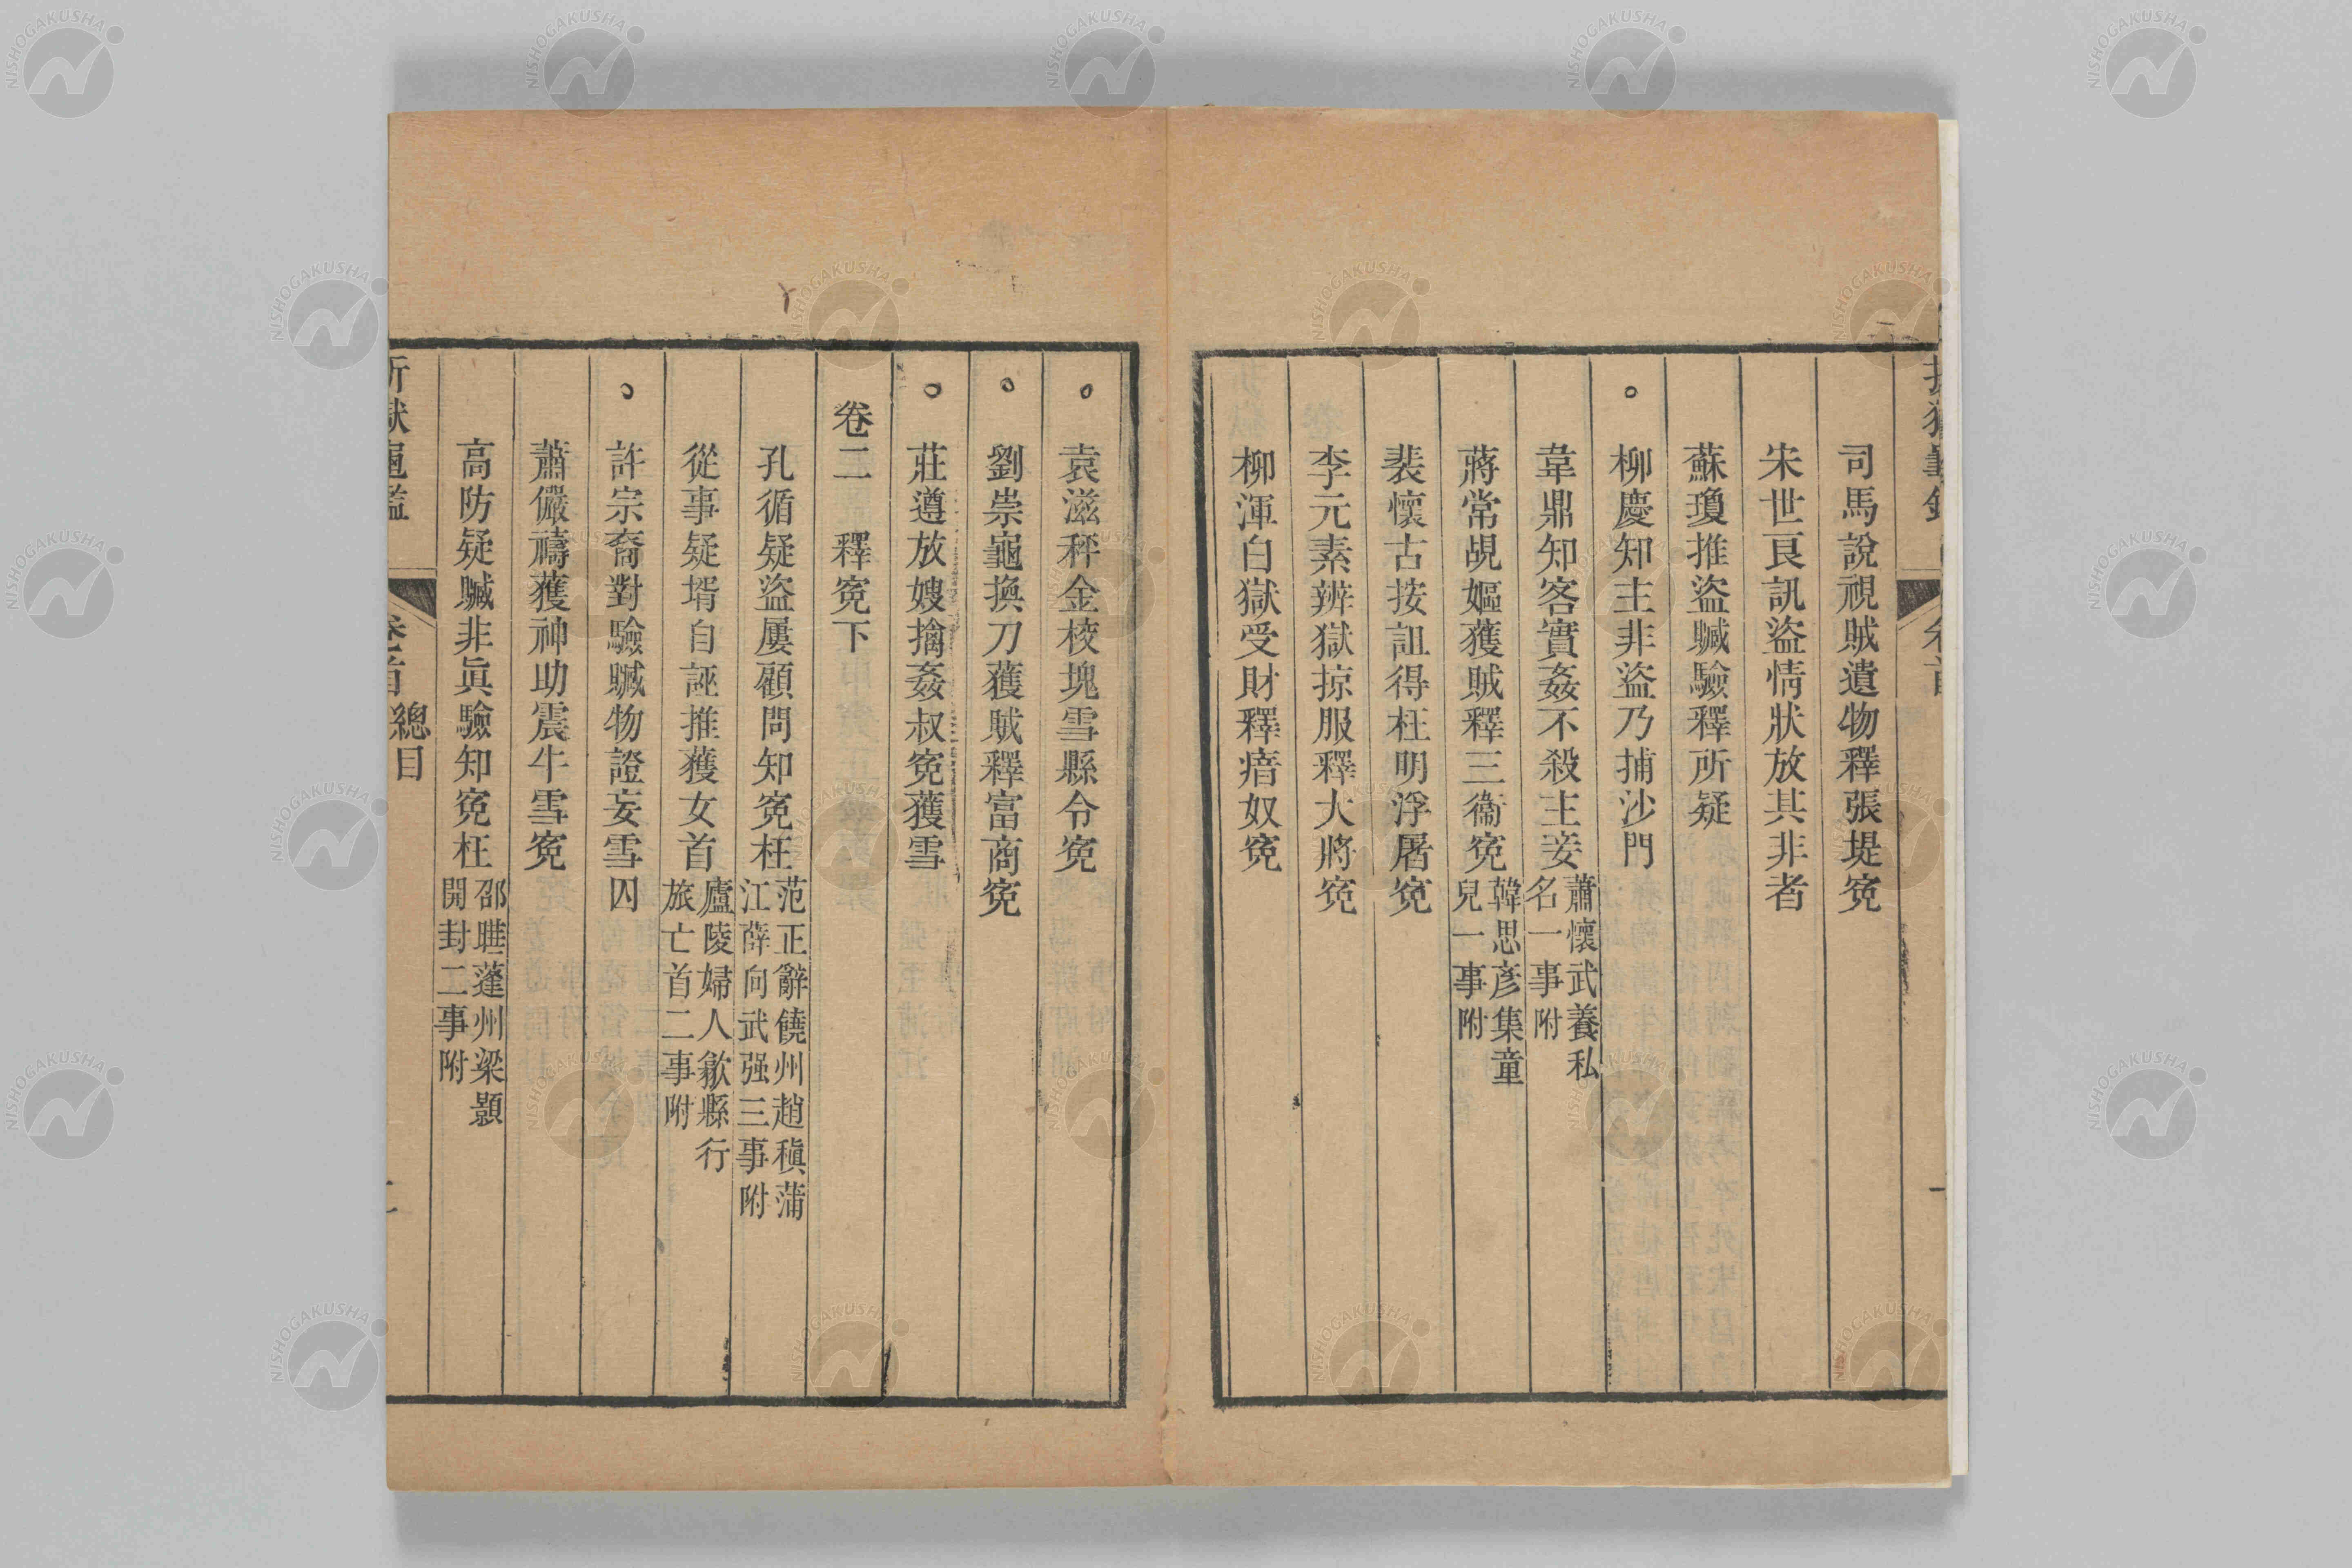 司馬說視賊遺物釋張堤寃
朱世良訊盜情狀放其非者
蘇瓊推盜贓驗釋所疑
柳慶知主非盜乃捕沙門
韋鼎知客實姦不殺主妾 蕭懷武養私
名一事附
蔣常覘嫗獲賊釋三衞寃 韓思彥集童
兒一事附
裴懷古按詛得枉明浮屠寃
李元素辨獄掠服釋大將寃
柳渾白獄受財釋瘖奴寃
袁滋秤金校塊雪縣令寃
劉崇龜換刀獲賊釋富商寃
莊遵放嫂擒姦叔寃獲雪
卷二 釋寃下
孔循疑盜屢顧問知寃枉 范正辭饒州趙稹蒲
江薛向武强三事附
從事疑壻自誣推獲女首 廬陵婦人歙縣行
旅亡首二事附
許宗裔對驗贓物證妄雪囚
蕭儼禱獲神助震牛雪寃
高防疑贓非眞驗知寃枉 邵曄蓬州梁顥
開封二事附
折獄龜鑑 卷首 總目
NISHOGAKUSHA